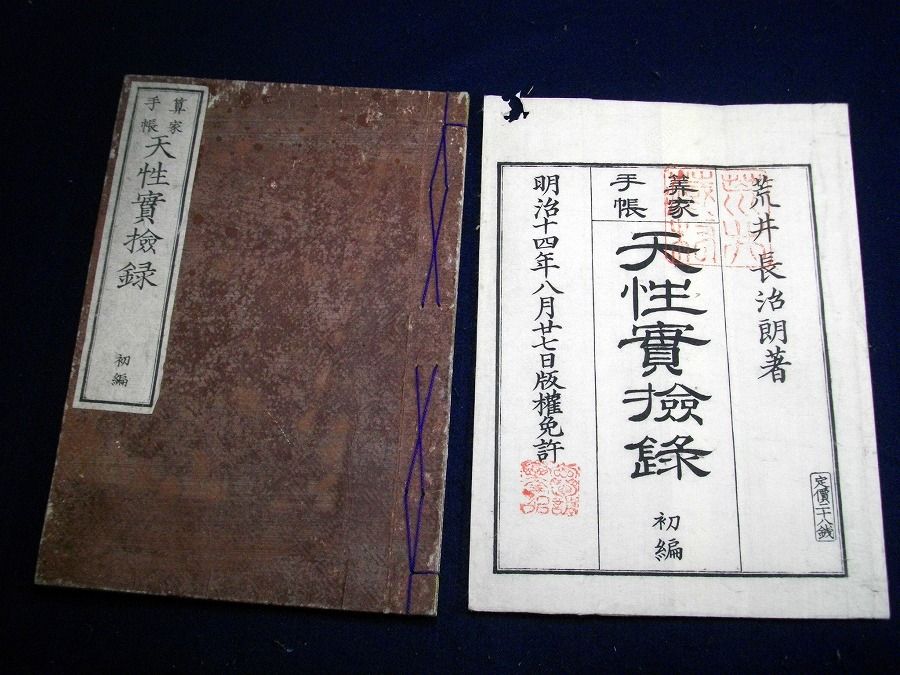 算家
手帳
天性實撿録
初編
荒井長治朗著
定價二十八銭
筭家
手帳
天性實撿録
初編
明治十四年八月廿七日版權免許